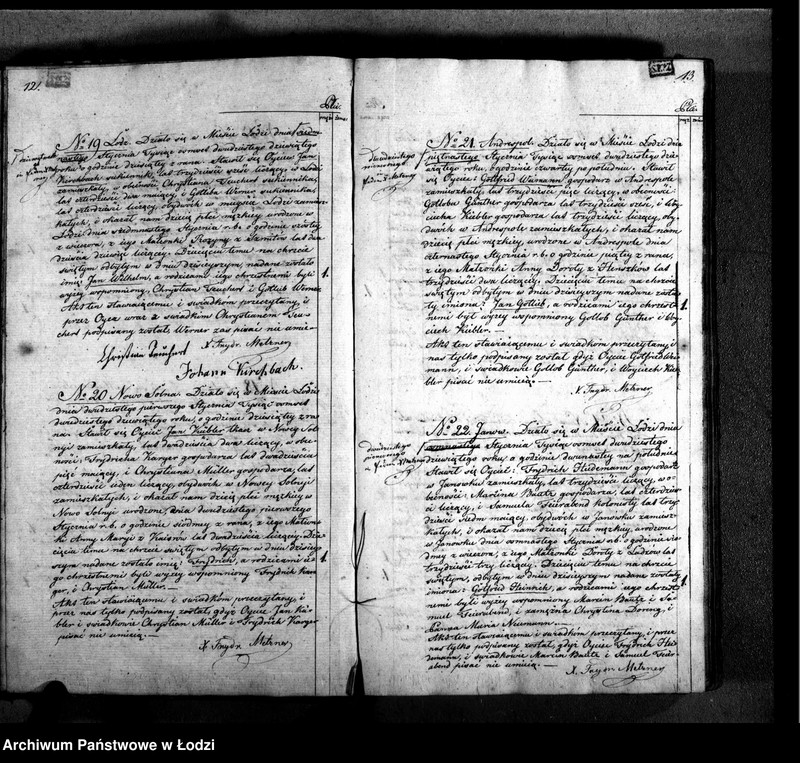 12.
Płci.
N: 19 Łódź. Działo się w Mieście Łodzi dnia
Stycznia Tysiąc ośmset dwudziestego dziewiątego
roku o godzinie dziesiątej z rana. Stawił się Oyciec Jan
Kirschbach sukiennik, lat trzydzieści sześć liczący, w Łodzi
zamieszkały, w obecności Chrystiana Teuchert sukiennika,
lat czterdzieści dwa mającego, i Gotlieba Werner sukiennika,
lat czterdzieści liczący, obydwóch w mieście Łodzi zamiesz-
kałych, i okazał nam dziecię płci męzkiey urodzone w
Łodzi dnia siedmnastego Stycznia r.b. o godzinie szóstey
z wieczora, z iego Małżonki Rozyny z lat dwa-
dzieścia dziewięć liczącey. Dziecięciu temu na chrzcie
świętym odbytym w dniu dzisieyszym nadane zostało
imię Jan Wilhelm, a rodzicami iego chrzestnemi byli
wyżey wspomniony, Chrystian Teuchert i Gotlib Werner
Akt ten stawaiącemu i świadkom przeczytany, i
przez Oyca wraz z świadkiem Chrystianem Teu-
chert podpisany został, Werner zaś pisać nie umie.
X. Fraydr. Metzner
Christian Teuchert
Johann Kirschbach.
N: 20 Nowo Solna. Działo się w Mieście Łodzi
dnia dwudziestego pierwszego Stycznia Tysiąc ośmset
dwudziestego dziewiątego roku, o godzinie dziesiątey z ra-
na. Stawił się Oyciec Jan Kiebler w Nowey Sol-
nyi zamieszkały, lat dwadzieścia dwa liczący, w obe-
cności Frydrycha Karger gospodarza lat dwadzieścia
pięć maiący, i Chrystiana Müller gospodarza, lat
czterdzieści ieden liczący, obydwóch w Nowey Solnyi
zamieszkałych, i okazał nam dziecię płci męzkiey w
Nowo Solnyi urodzone, dnia dwudziestego pierwszego
Stycznia r.b. o godzinie siódmey z rana, z iego Małżon-
ki Anny Maryi z lat dwadzieścia liczącey. Dzie-
cięciu temu na chrzcie świętym odbytym w dniu dzisiey-
szym nadane zostało imię: Frydrich, a rodzicami ie-
go chrzestnemi byli wyżey wspomniony Frydrich Kar-
ger, i Chrystian Müller.
Akt ten stawaiącemu i świadkom przeczytany, i
przez nas tylko podpisany został, gdyż Oyciec Jan Kie-
bler i świadkowie Chrystian Müller i Frydrich Karger
pisać nie umieią.
X. Fraydr. Metzner
13.
Płci.
N: 21. Andrespol. Działo się w Mieście Łodzi dnia
piętnastego Stycznia Tysiąc ośmset dwudziestego dzie-
wiątego roku, o godzinie czwartey po południu. Stawił
się Oyciec Gottfried gospodarz w Andrespolu
zamieszkały, lat trzydzieści pięć liczący, w obecności
Gotloba Günther gospodarza lat trzydzieści sześć, i Woy-
ciecha Kiebler gospodarza lat trzydzieści liczący, oby-
dwóch w Andrespolu zamieszkałych, i okazał nam
dziecię płci męzkiey, urodzone w Andrespolu dnia
czternastego Stycznia r.b. o godzinie piątey z rana,
z iego Małżonki Anny Doroty z lat
trzydzieści dwa liczącey, Dziecięciu temu na chrzcie
świętym odbytym w dniu dzisieyszym nadane zosta-
ły imiona: Jan Gotlib, a rodzicami iego chrzest-
nemi byli wyżey wspomniony Gotlob Günther i Woy-
ciech Kiebler.
Akt ten stawaiącemu i świadkom przeczytany, i
nas tylko podpisany został gdyż Oyciec Gotfried
i świadkowie Gotlob Günther, i Woyciech Kie-
bler pisać nie umieią.
X. Fraydr. Metzner
N: 22. Janow. Działo się w Mieście Łodzi dnia
Stycznia Tysiąc ośmset dwudziestego
dziewiątego roku, o godzinie dwunastey na południe
Stawił się Oyciec: Frydrich Heidemann gospodarz
w Janowku zamieszkały, lat trzydzieści liczący, w o-
becności Marcina Bautz gospodarza, lat czterdzie-
ści siedm, i Samuela Feierabend kolonisty lat trzy-
dzieści siedm maiący, obydwóch w Janowku zamiesz-
kałych, i okazał nam dziecię płci męzkiey, urodzone
w Janowku dnia osmnastego Stycznia r.b. o godzinie sió-
dmey z wieczora, z iego Małżonki Doroty z lat
trzydzieści trzy liczącey. Dziecięciu temu na chrzcie
świętym, odbytym w dniu dzisieyszym nadane zostały
imiona: Gotfrid Heinrich, a rodzicami iego chrzest-
nemi byli wyżey wspomniony Marcin Bautz i Sa-
muel Feierabend, i zamężna Chrystyna Lorenz, i
Panna Maria Neumann.
Akt ten stawaiącemu i świadkom przeczytany, i przez
nas tylko podpisany został, gdyż Oyciec Frydrich Hei-
demann, i świadkowie Marcin Bautz i Samuel Feier-
abend pisać nie umieią.
X. Fraydr. Metzner
Archiwum Państwowe w Łodzi